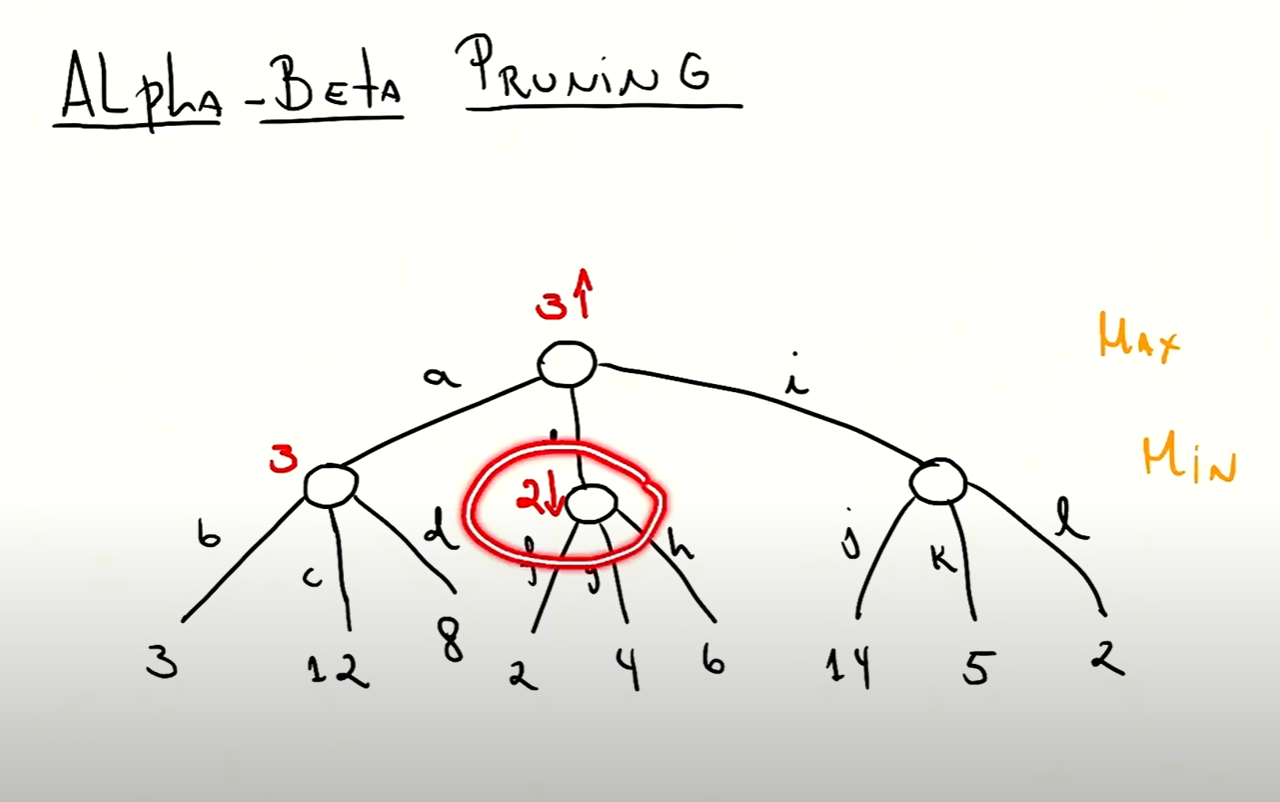 ALpha-Beta Pruning
3↑
Max
a
i
3
Min
2↓
b
c
d
f
g
h
j
k
l
3
12
8
2
4
6
14
5
2